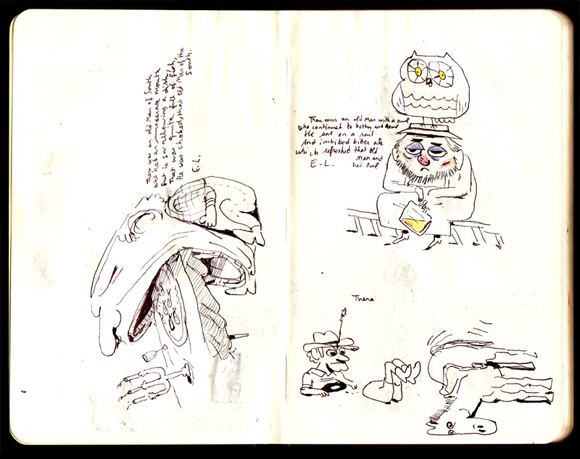 There was an old Man of South
who had an immoderate mouth
But in swallowing a dish
that was quite full of Fish
He was choked, that old Man of the
South.
E.L.
There was an old Man with a owl
who continued to bother and howl
He sat on a rail
And imbibed bitter ale
which refreshed that old
Man and
his owl
E.L.
There